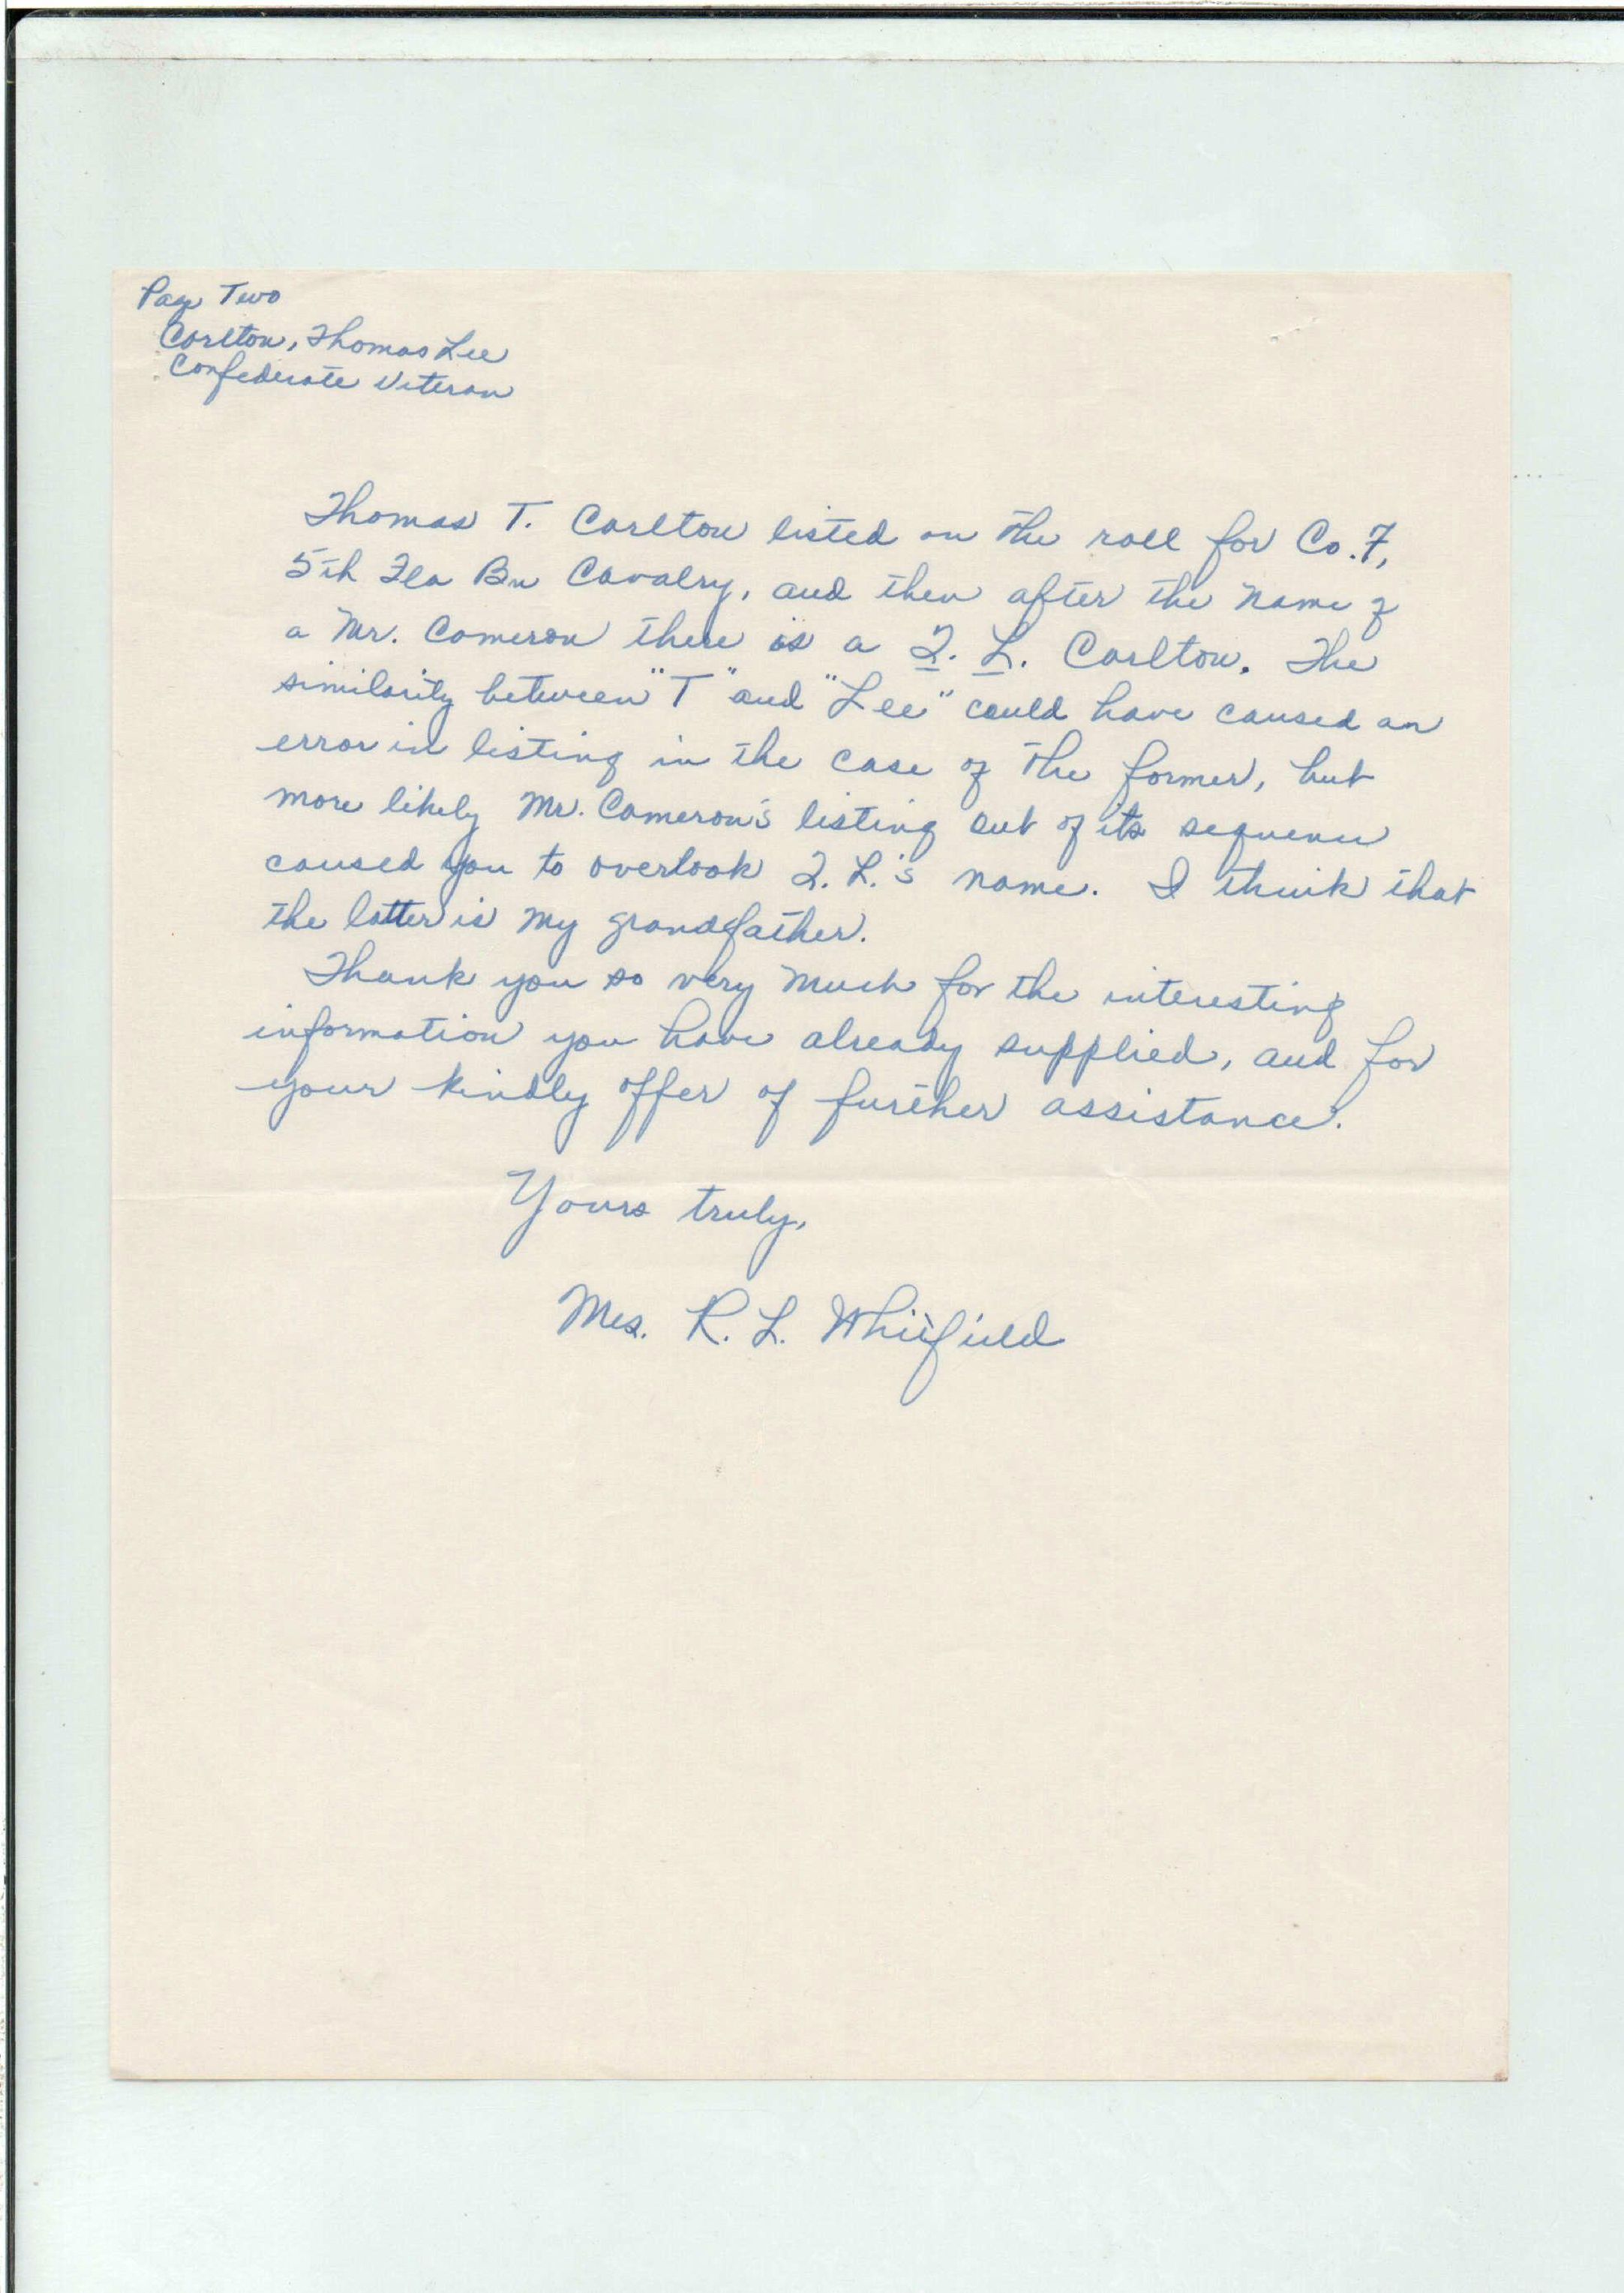 Page Two
Carlton, Thomas Lee
Confederate Veteran
Thomas T. Carlton listed on the roll for Co. F,
5th Fla Bn Cavalry, and then after the name of
a Mr. Cameron there is a T. L. Carlton. The
similarity between "T" and "Lee" could have caused an
error in listing in the case of the former, but
more likely Mr. Cameron's listing out of its sequence
caused you to overlook T. L.'s name. I think that
the latter is my grandfather.
Thank you so very much for the interesting
information you have already supplied, and for
your kindly offer of further assistance.
Yours truly,
Mrs. R. L. Whitfield